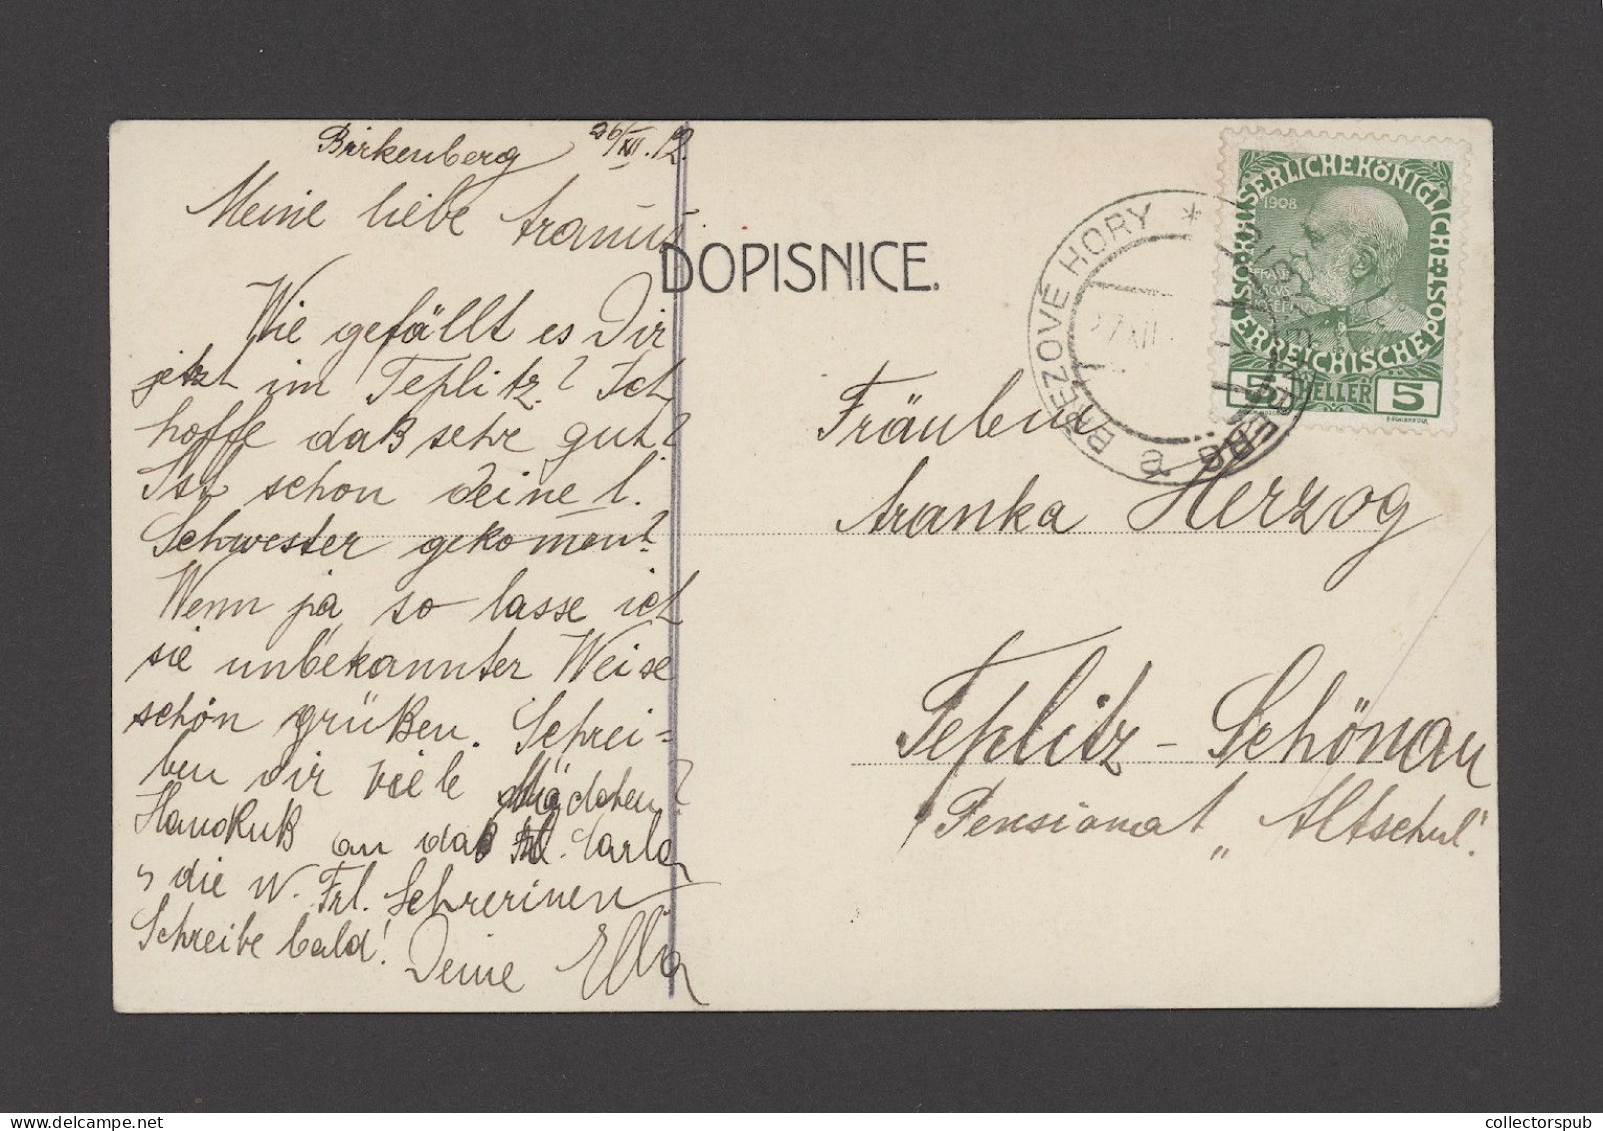 Birkenberg 26/XII.12.
Meine liebe Aranuś
DOPISNICE.
Wie gefällt es Dir
jetzt im Teplitz? Ich
hoffe daß sehr gut?
Ist schon deine l.
Schwester gekomen?
Wenn ja so lasse ich
sie unbekannter Weise
schön grüßen. Schrei-
ben dir viele Mädchen?
Handkuß an das Frl. Carla
die w. Frl. Schrerinen
Schreibe bald! Deine Ella
BŘEZOVÉ HORY *
27 XII
KAISERLICHEKÖNIGLICHE
ÖSTERREICHISCHE POST
1908
FRANZ
JOSEF I
5 HELLER 5
Fräulein
Aranka Herzog
Teplitz-Schönau
Pensionat „Altschul".
collectorspub.com